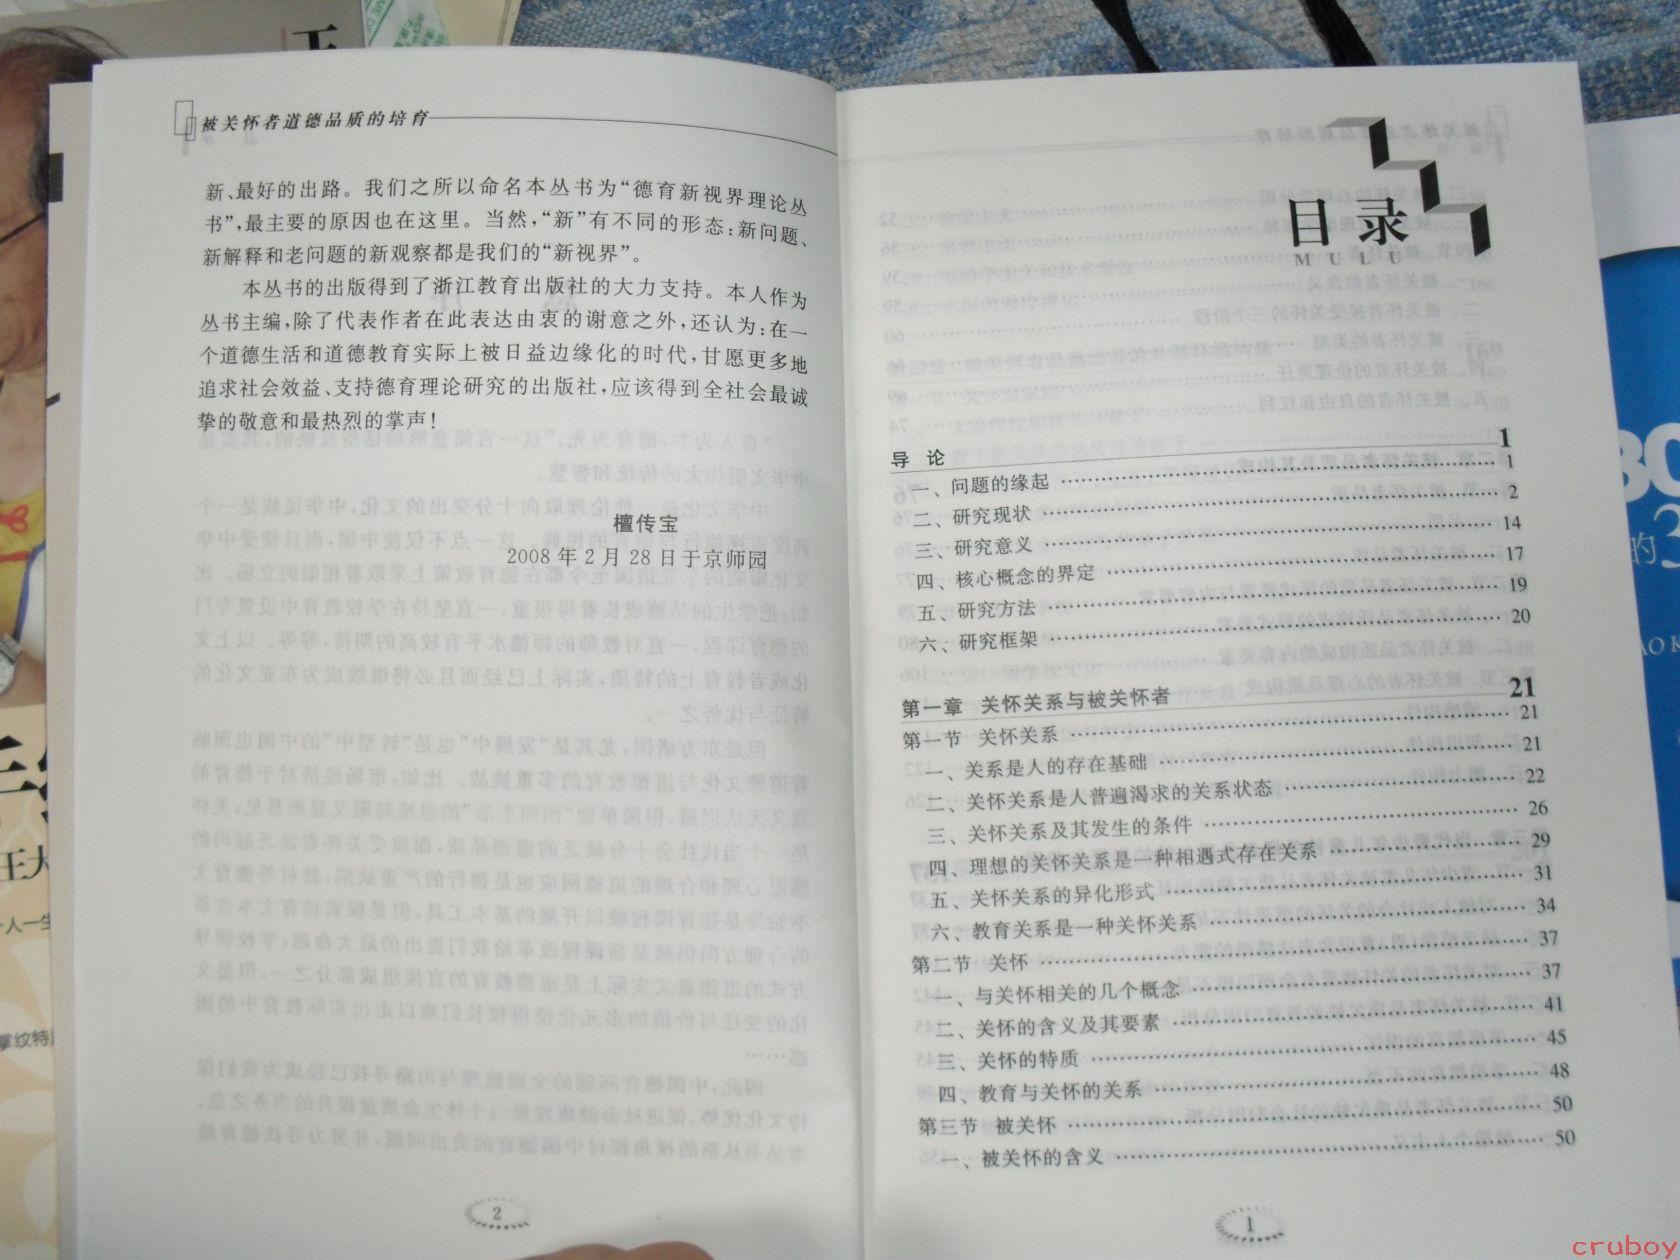 被关怀者道德品质的培育
新、最好的出路。我们之所以命名本丛书为“德育新视界理论丛
书”,最主要的原因也在这里。当然,“新”有不同的形态:新问题、
新解释和老问题的新观察都是我们的“新视界”。
本丛书的出版得到了浙江教育出版社的大力支持。本人作为
丛书主编,除了代表作者在此表达由衷的谢意之外,还认为:在一
个道德生活和道德教育实际上被日益边缘化的时代,甘愿更多地
追求社会效益、支持德育理论研究的出版社,应该得到全社会最诚
挚的敬意和最热烈的掌声!
檀传宝
2008年2月28日于京师园
2
目录
MULU
导 论 1
一、问题的缘起 1
二、研究现状 2
三、研究意义 14
四、核心概念的界定 17
五、研究方法 19
六、研究框架 20
第一章 关怀关系与被关怀者 21
第一节 关怀关系 21
一、关系是人的存在基础 21
二、关怀关系是人普遍渴求的关系状态 22
三、关怀关系及其发生的条件 26
四、理想的关怀关系是一种相遇式存在关系 29
五、关怀关系的异化形式 31
六、教育关系是一种关怀关系 34
第二节 关怀 37
一、与关怀相关的几个概念 37
二、关怀的含义及其要素 41
三、关怀的特质 45
四、教育与关怀的关系 48
第三节 被关怀 50
一、被关怀的含义 50
1
王大
人一生
掌纹特
的3
cruboy